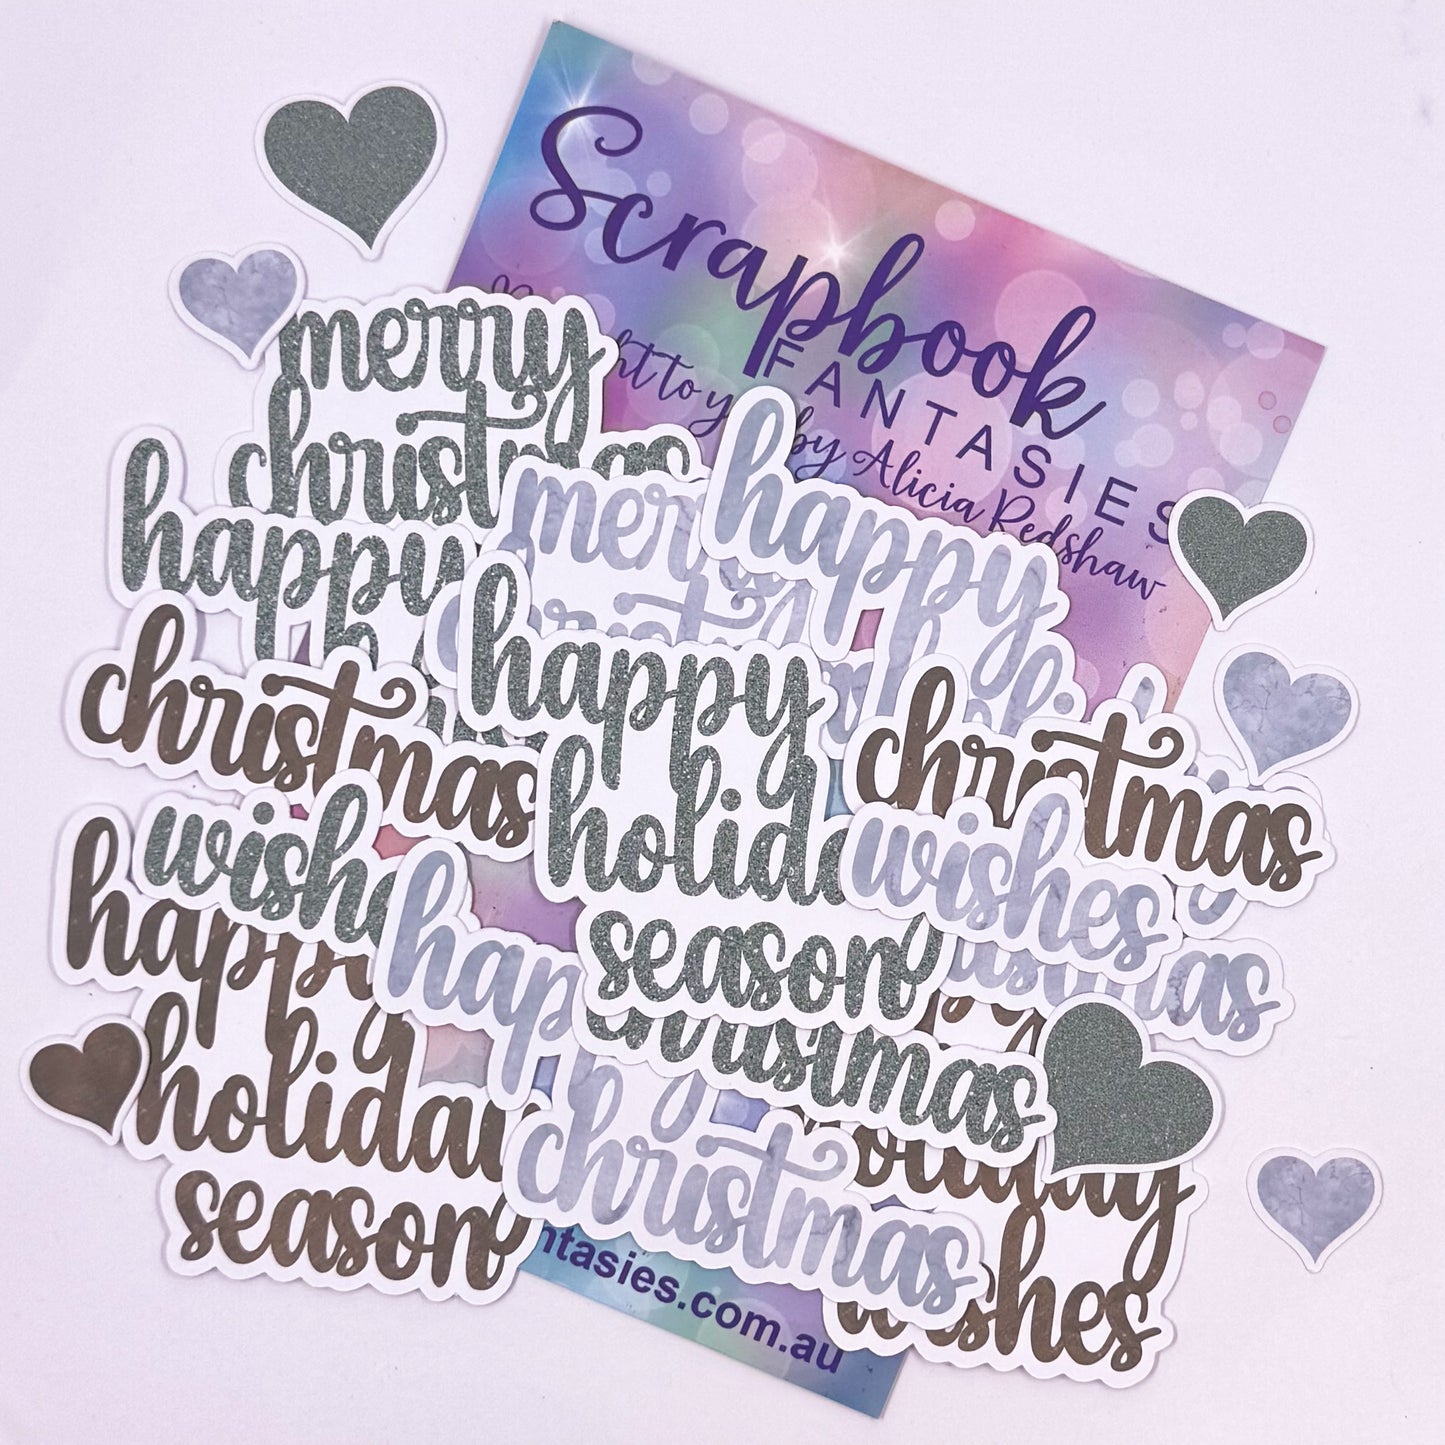 Scrapbook
FANTASIES
by Alicia Redshaw
merry
christmas
happy
merry
happy
christmas
happy
holiday
season
christmas
wishes
wishes
christmas
happy
holiday
season
happy
christmas
christmas
holiday
wishes
ntasies.com.au